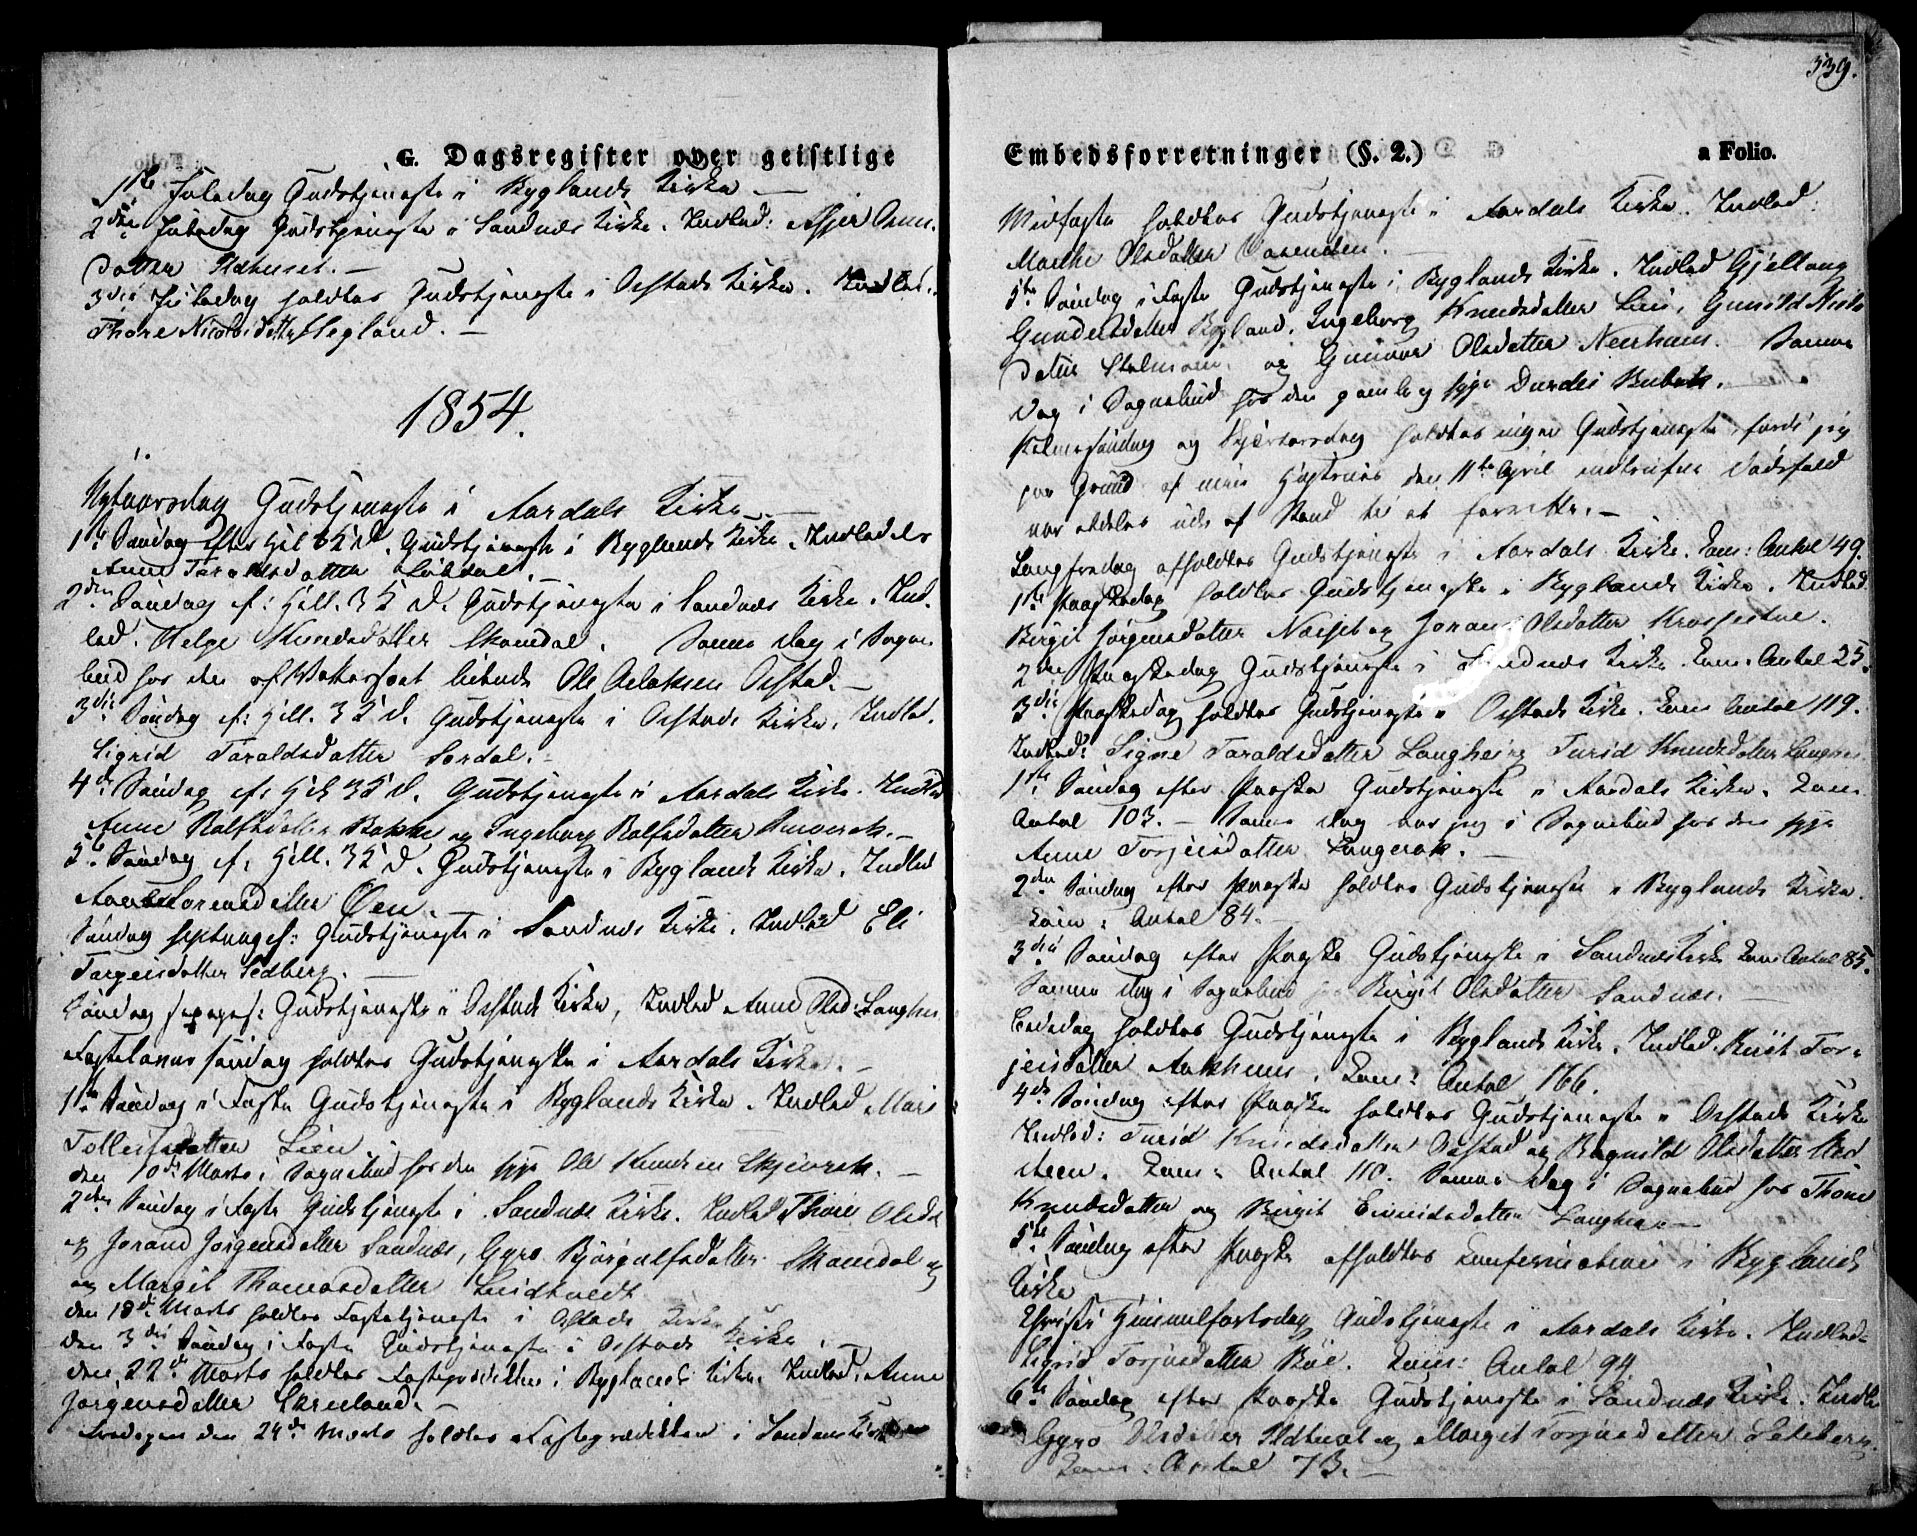 G. Dagsregister over geistlige
1ste Juledag Gudstjeneste i Byglands Kirke —
2den Juledag Gudstjeneste i Sandnæs Kirke. Indled:
datter Ildhuset. —
3die Juledag holdtes Gudstjeneste i Ostads Kirke. Indled.
Thore Nicolsdatter Hegland. —
1854.
Nytaarsdag Gudstjeneste i Aardals Kirke —
1ste Søndag efter Hel. 3 K. D. Gudstjeneste i Byglands Kirke. Indledes
Anne Taraldsdatter
2den Søndag ef: Hell. 3 K. D. Gudstjeneste i Sandnæs Kirke. Ind-
led. Helge Knudsdatter Skomdal. Samme Dag i Sogne-
bud hos den af lidende Ole Aslaksen Ostad. —
3die Søndag ef: Hell. 3 K. D. Gudstjeneste i Ostads Kirke. Indled.
Sigrid Taraldsdatter Sordal. —
4de Søndag ef: Hel. 3 K. D. Gudstjeneste i Aardals Kirke. Indled
Anne Rolfsdatter Bakke og Ingeborg Rolfsdatter
5te Søndag ef. Hell. 3 K. D. Gudstjeneste i Byglands Kirke. Indled
Sorensdatter Øen.
Søndag septuages: Gudstjeneste i Sandnæs Kirke. Indled Eli
Torgeisdatter Sedberg. —
Søndag sexages: Gudstjeneste i Ostads Kirke, Indled Anne Olsd: Langhei
Fastelavns søndag holdtes Gudstjeneste i Aardals Kirke. —
1ste Søndag i Faste Gudstjeneste i Byglands Kirke. Indled Mari
Tollefsdatter Lien
den 10de Marts i Sognebud hos den syge Ole Knudsen Skjevrak. —
2den Søndag i Faste Gudstjeneste i Sandnæs Kirke. Indled Thore Olsd.
og Jorand Jørgensdatter Sandnæs, Gyro Bjørgulfsdatter Skomdal og
og Margit Thomasdatter Lindtvedt
den 18de Marts holdtes Fastetjeneste i Ostads Kirke
den 3die Søndag i Faste Gudstjeneste i Ostads Kirke. —
den 22de Marts holdtes Fasteprædiken i Byglands Kirke. Indled. Anne
Jørgensdatter Skreland. —
Fredagen den 24de Marts holdtes Fasteprædiken i Sandnæs Kirke
539.
Embedsforretninger (§. 2.) a Folio.
Midfaste holdtes Gudstjeneste i Aardals Kirke. Indled:
Marthe Olsdatter Vasenden. —
5te Søndag i Faste Gudstjeneste i Byglands Kirke. Indled Gjellaug
Gundersdatter Bygland, Ingeborg Knudsdatter Lien, Gunild Nicls
datter og Gunvor Olsdatter Neerhuus. Samme
Dag i Sognebud hos den gamle og syge
Palmesøndag og Skjærtorsdag holdtes ingen Gudstjeneste fordi jeg
paa Grund af min Hustrues den 11te April indtrufne Dødsfald
var aldeles ude af Stand til at forrette. —
Langfredag afholdtes Gudstjeneste i Aardals Kirke. Com: Antal 49.
1ste Paaskedag holdtes Gudstjeneste i Byglands Kirke. Indled
Birgit Jørgensdatter Neset og Jorand Olsdatter
2den Paaskedag Gudstjeneste i Sandnæs Kirke. Com: Antal 25.
3die Paaskedag holdtes Gudstjeneste i Ostads Kirke. Com Antal 119.
Indled: Signe Taraldsdatter Langhei og Turid Knudsdatter
1ste Søndag efter Paaske Gudstjeneste i Aardals Kirke. Com:
Antal 103. — Samme Dag var jeg i Sognebud hos den syge
Anne Torjeisdatter Langerak. —
2den Søndag efter Paaske holdtes Gudstjeneste i Byglands Kirke.
Com: Antal 84. —
3die Søndag efter Paaske Gudstjeneste i Sandnæs Kirke Com Antal 85.
Samme Dag i Sognebud Birgit Olsdatter Sandnæs. —
Bededag holdtes Gudstjeneste i Byglands Kirke. Indled. Tor-
jeisdatter Aakhuus. Com: Antal 166.
4de Søndag efter Paaske holdtes Gudstjeneste i Ostads Kirke
Indled: Turid Knudsdatter Ostad og Ragnild Olsdatter
Com: Antal 110. Samme Dag i Sognebud hos Thone
Knudsdatter og Birgit Eivindsdatter Langhei —
5te Søndag efter Paaske afholdtes Confirmation i Byglands
Kirke
Christi Himmelfartsdag Gudstjeneste i Aardals Kirke. Indled:
Sigrid Torjusdatter Bøe. Com: Antal 94
6te Søndag efter Paaske Gudstjeneste i Sandnæs Kirke. Indle
Gyro Olsdatter Ildhuset og Margit Torjusdatter
Com: Antal 73. —